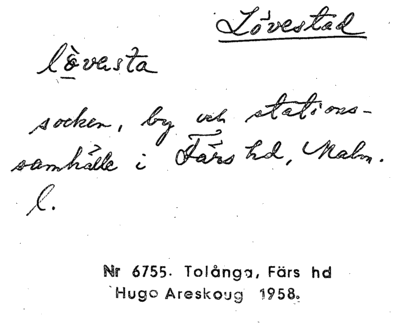 Lövestad
lövesta
socken, by och stations-
samhälle i Färs hd, Malm.
l.
Nr 6755. Tolånga, Färs hd
Hugo Areskoug 1958.